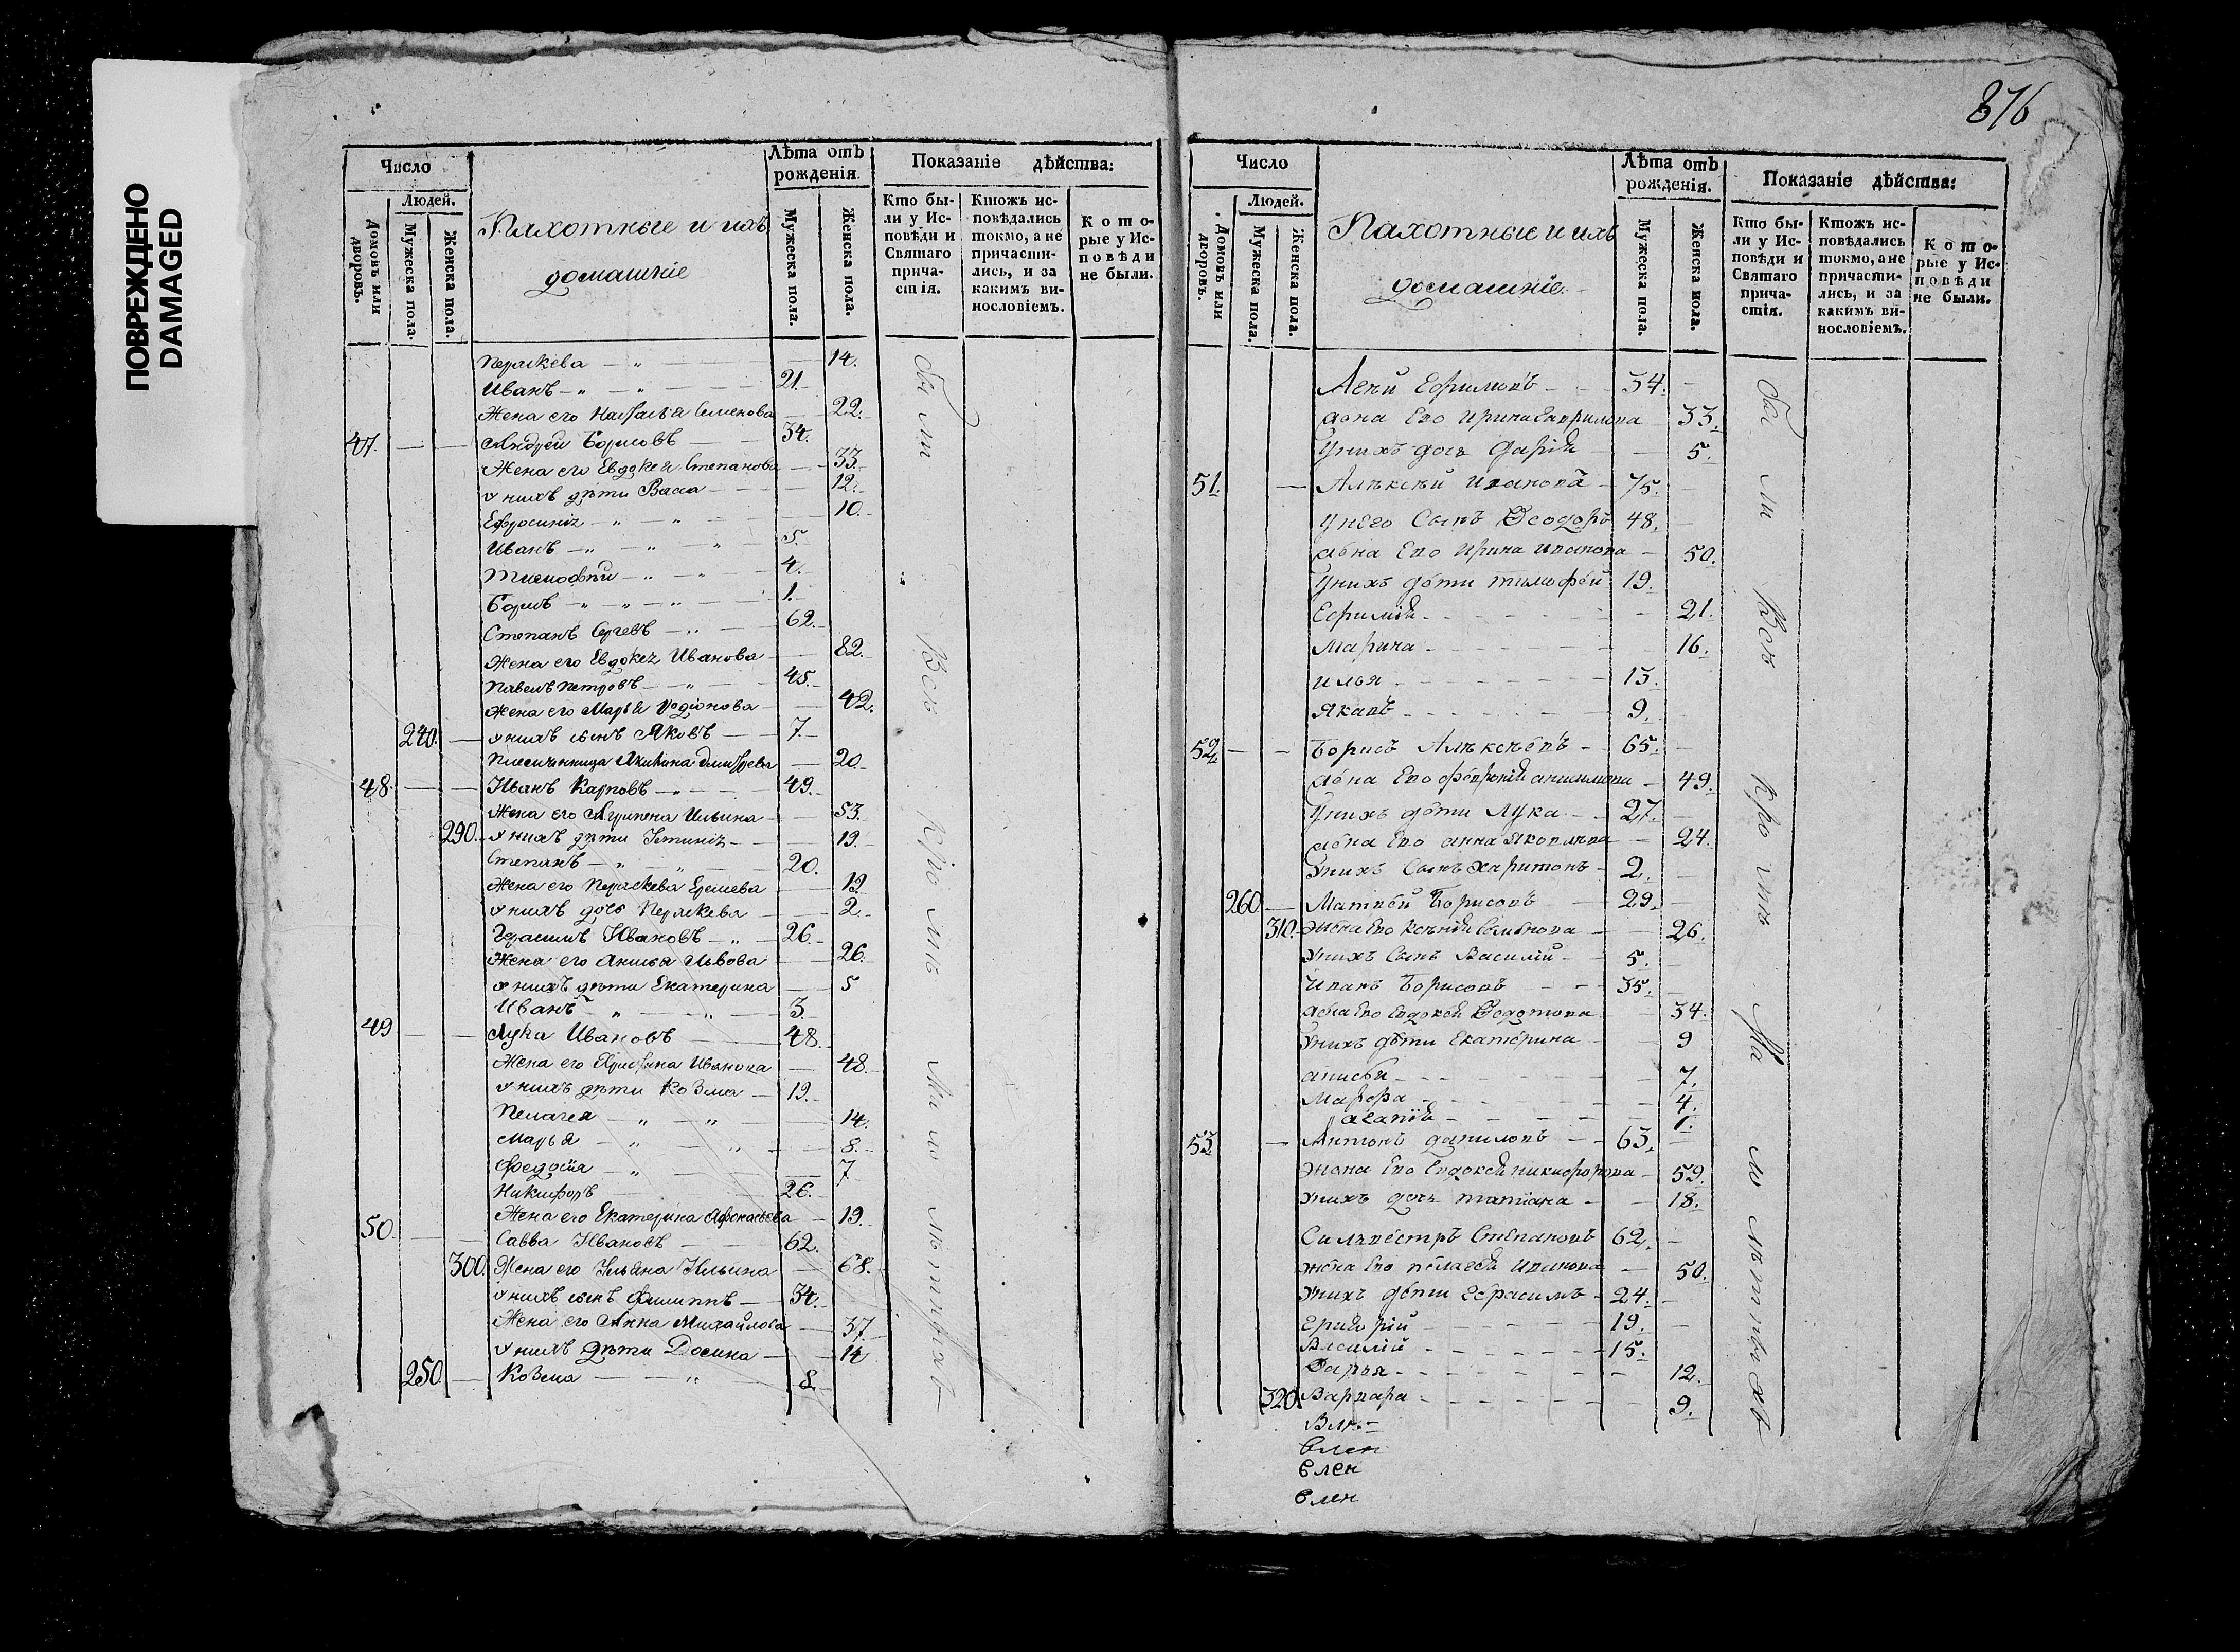 ПОВРЕЖДЕНО
DAMAGED
876
Число
Людей.
Домовъ или дворовъ.
Мужеска пола.
Женска пола.
Пахотные и ихъ
домашніе
Лѣта отъ рожденія.
Мужеска пола.
Женска пола.
Показаніе дѣйства:
Кто были у Исповѣди и Святаго причастія.
Ктожъ исповѣдались токмо, а не причастились, и за какимъ винословіемъ.
Которые у Исповѣди не были.
Параскева 14.
Иванъ 21.
Жена его Настасья Семенова 22.
47. Андрей Борисовъ 34.
Жена его Евдокея Степанова 33.
у нихъ дѣти Васса 12.
Ефросинія 10.
Иванъ 5.
Тимофѣй 4.
Борисъ 1.
Степанъ Сергевъ 62.
Жена его Евдокея Иванова 82.
Павелъ Петровъ 45.
Жена его Марья Родіонова 42.
240. у нихъ сынъ Яковъ 7.
Племянница Акилина 20.
48. Иванъ Карповъ 49.
Жена его Агрипена Ильина 53.
290. у нихъ дѣти Устинія 19.
Степанъ 20.
Жена его Параскева 19
у нихъ дочь Параскева 2.
Герасимъ Ивановъ 26.
Жена его Анисья Львова 26.
у нихъ дѣти Екатерина 5
Иванъ 3.
49 Лука Ивановъ 48.
Жена его Христина Иванова 48.
у нихъ дѣти Козма 19.
Пелагея 14.
Марья 8.
Федосія 7.
Никифоръ 26.
Жена его Екатерина Афонасьева 19.
50. Савва Ивановъ 62.
300. Жена его Ульяна Ильина 68.
у нихъ сынъ Филиппъ 34.
Жена его Анна Михайлова 37.
у нихъ дѣти 14
250. Козма 8.
Бы ли Всѣ
Число
Людей.
Домовъ или дворовъ.
Мужеска пола.
Женска пола.
Пахотные и ихъ
домашніе
Лѣта отъ рожденія.
Мужеска пола.
Женска пола.
Показаніе дѣйства:
Кто были у Исповѣди и Святаго причастія.
Ктожъ исповѣдались токмо, а не причастились, и за какимъ винословіемъ.
Которые у Исповѣди не были.
Ефимовъ 34.
жена Его Ирина 33.
Унихъ дочь Дарія 5.
51. Алѣксѣй Ивановъ 75.
Унего Сынъ Ѳеодоръ 48.
жена Его Ирина Иванова 50.
Унихъ дѣти тимофѣй 19.
Ефимія 21.
Марина 16.
илья 13.
Яковъ 9.
52. Борисъ Алѣксѣевъ 65.
жена Его 49.
Унихъ дѣти Лука 27.
жена Его анна Яковлева 24.
Унихъ Сынъ Харитонъ 2.
260. Матвѣй Борисовъ 29.
310. Жена Его Ксѣнія Семенова 26.
Унихъ Сынъ Василій 5.
Иванъ Борисовъ 35.
жена Его Евдокея Ѳедотова 34.
Унихъ дѣти Екатерина 9
анисья 7.
Марфа 4.
агапія 1.
53 Антонъ даниловъ 63.
жена Его Евдокея никифорова 59.
Унихъ дочь татіана 18.
Силвестръ Степановъ 62.
жена Его пелагея Иванова 50.
Унихъ дѣти герасимъ 24.
григорій 19.
Василій 15.
Дарья 12.
320. Варвара 9.
Бы ли Всѣ
Влен
Влен
Влен